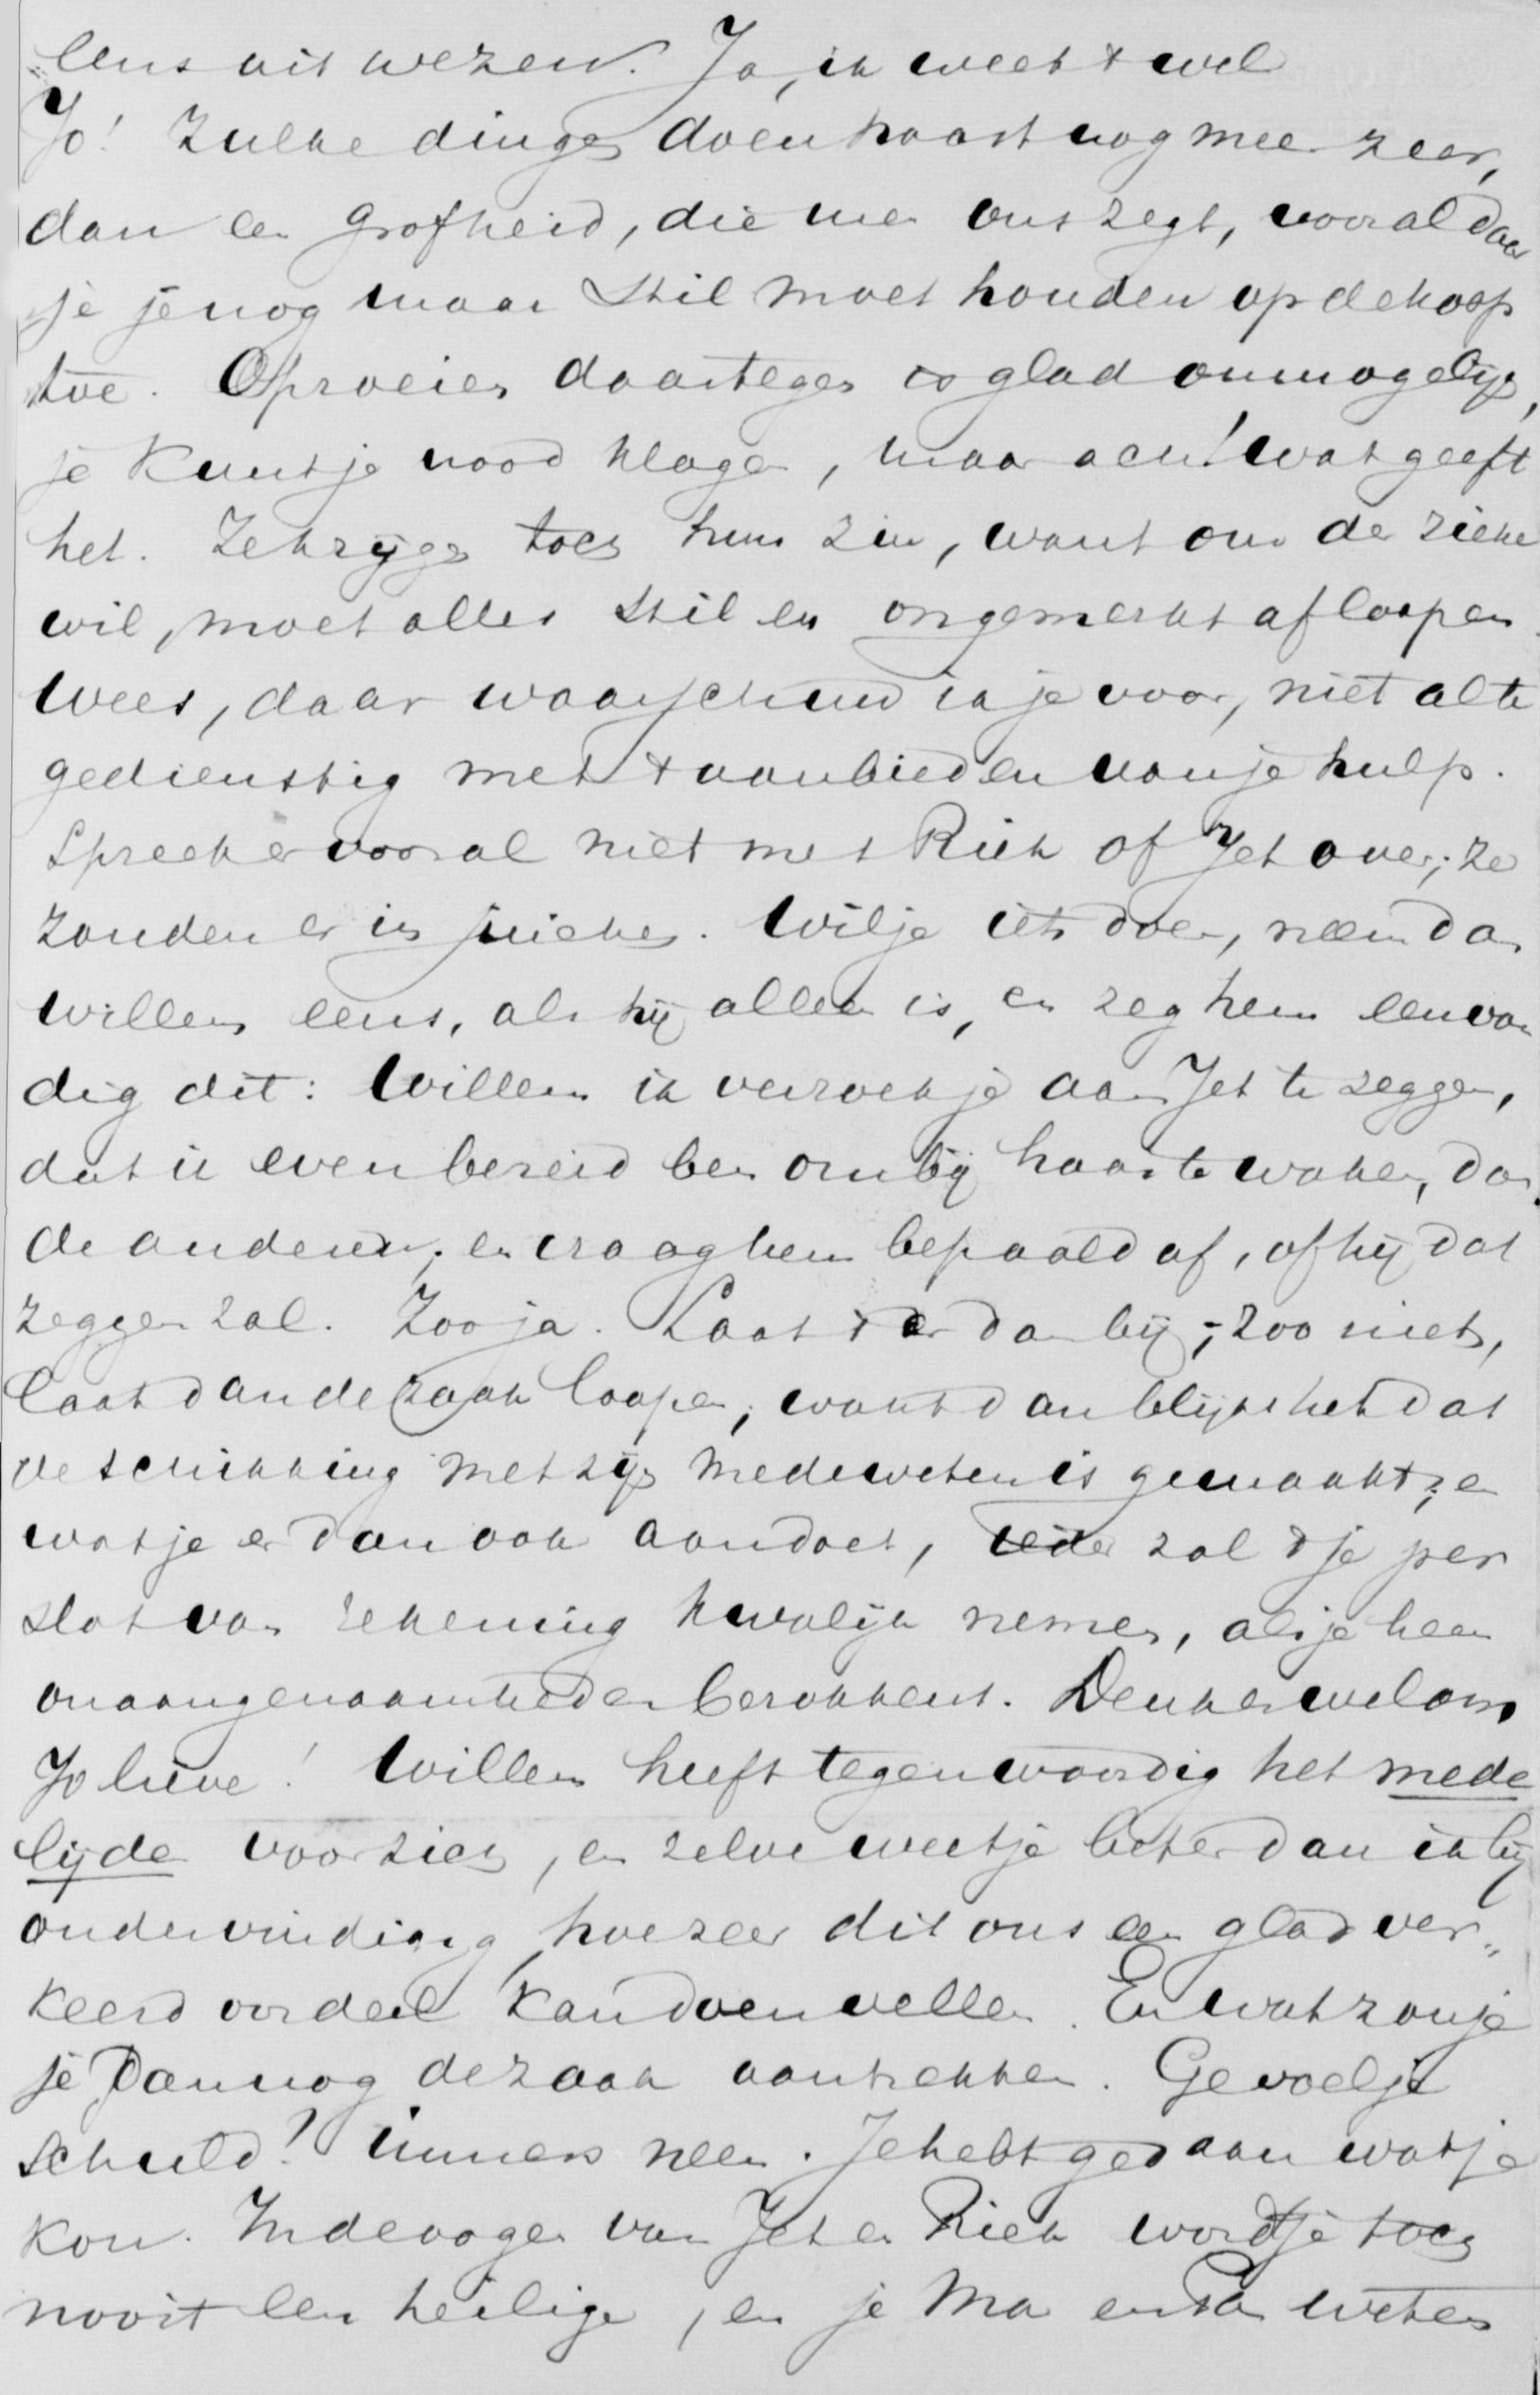 eens uit wezen. Ja, ik weet 't wel
Jo! Zulke dingen doen haast nog meer zeer,
dan een grofheid, die men ons zegt, vooral daar
je je nog maar stil moet houden op de koop
toe. Oproeien daartegen is glad onmogelijk,
je kunt je nood klagen, maar ach! wat geeft
het. Ze krijgen toch hun zin, want om der zieke
wil, moet alles stil en ongemerkt afloopen.
Wees, daar waarschuw ik je voor, niet al te
gedienstig met 't aanbieden van je hulp.
Spreek er vooral niet met Riek of Jet over; ze
zouden er in juichen. Wil je iets doen, neem dan
Willem eens, als hij alleen is, en zeg hem eenvou
dig dit: Willem ik verzoek je aan Jet te zeggen,
dat ik even bereid ben om bij haar te waken, dan
de anderen; en vraag hem bepaald af, of hij dat
zeggen zal. Zoo ja. Laat 't er dan bij; zoo niet,
laat dan de zaak loopen, want dan blijkt het dat
de schikking met zijn medeweten is gemaakt; en
wat je er dan ook aan doet, ieder zal 't je per
slot van rekening kwalijk nemen, als je hem
onaangenaamheden berokkent. Denk er wel om,
Jo lieve! Willem heeft tegenwoordig het mede
lijden voor zich, en zelve weet je beter dan ik bij
ondervinding, hoezeer dit ons een glad ver„
keerd oordeel kan doen vellen. En wat zou je
je dan nog de zaak aantrekken. Gevoel je
schuld? immers neen. Je hebt gedaan wat je
kon. In de oogen van Jet en Riek wordt je toch
nooit een heilige, en je Ma en Pa weten